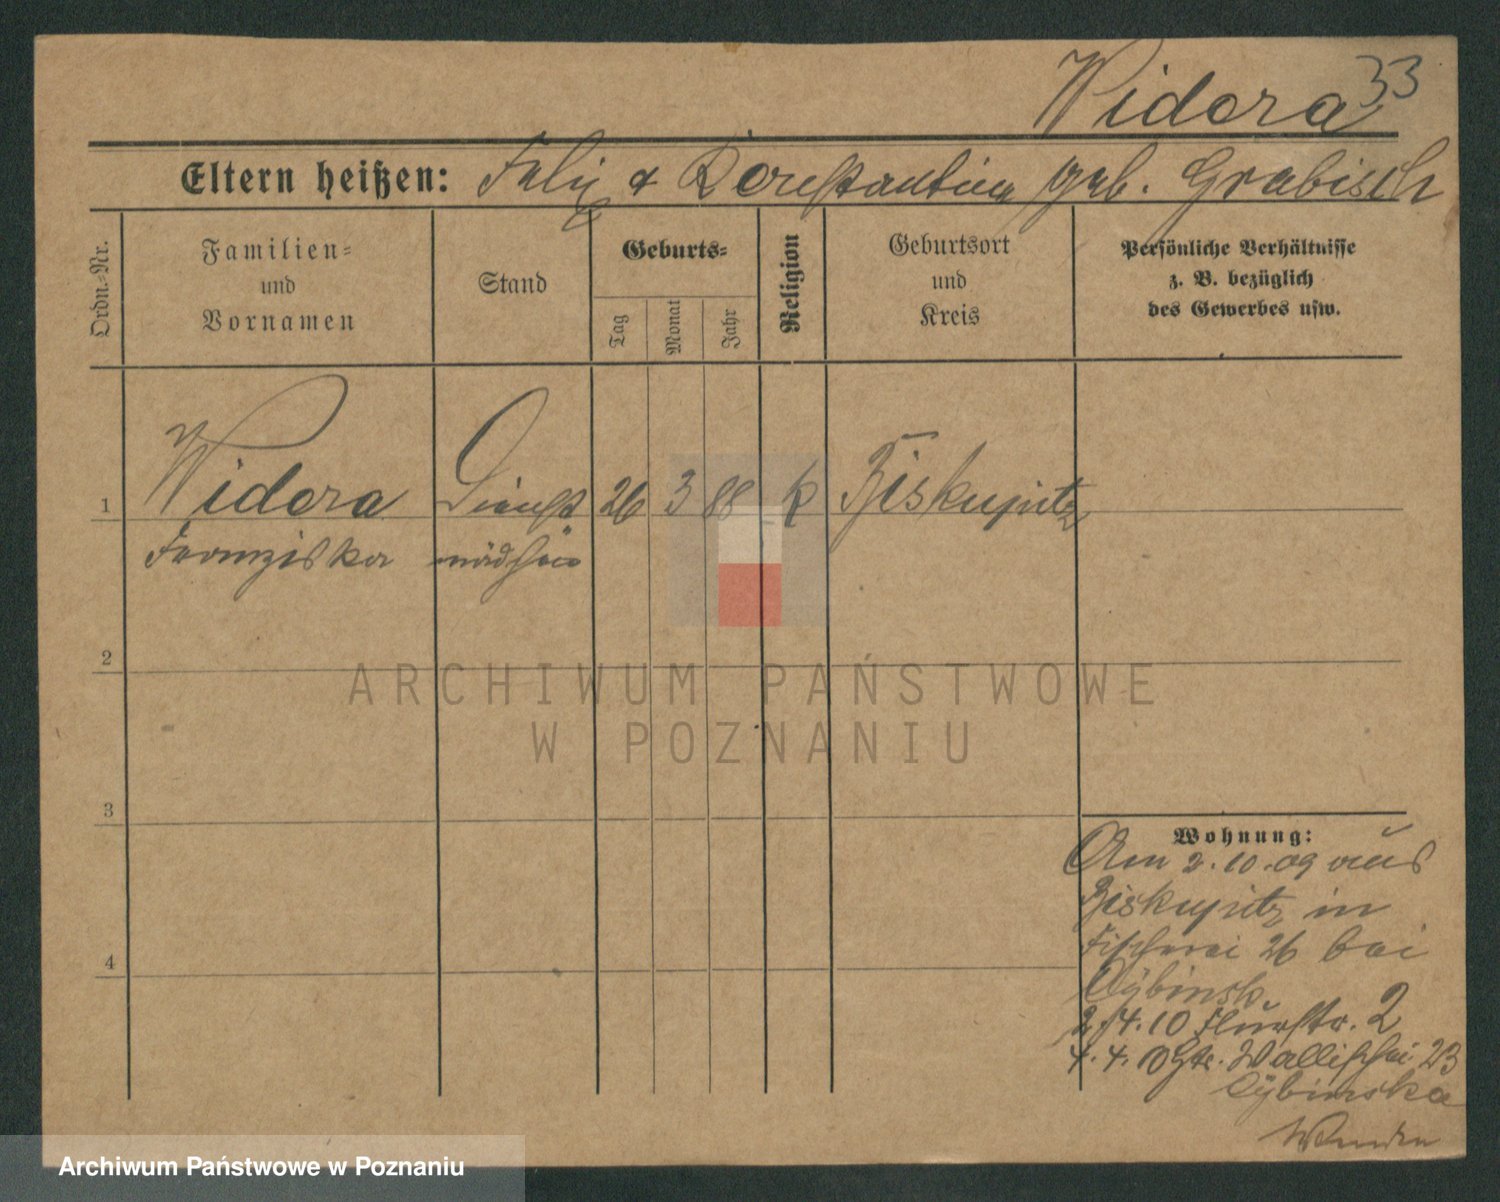 33
Widera
Eltern heißen: Felix & Konstantina geb. Grabisch
Ordn.-Nr.
Familien-
und
Vornamen
Stand
Geburts-
Tag
Monat
Jahr
Religion
Geburtsort
und
Kreis
Persönliche Verhältnisse
z. B. bezüglich
des Gewerbes usw.
1
Widera Dienst 26 3 88 k Biskupitz
Franziska mädchen
2
ARCHIWUM PAŃSTWOWE
W POZNANIU
3
Wohnung:
Am 2.10.09 aus
Biskupitz in
Fischerei 26 bei
Cybinsk
4
2/4.10 Flurstr. 2
4.4.10 Gr. Wallischei 23
Cybinska
Wenden
Archiwum Państwowe w Poznaniu